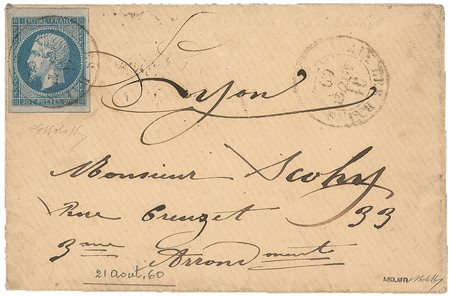 EMPIRE FRANC.
20 C. POSTES 20 C.
Lyon
Monsieur Scohy
Rue Creuzet 33
3me Arrondment
21 Aout. 60